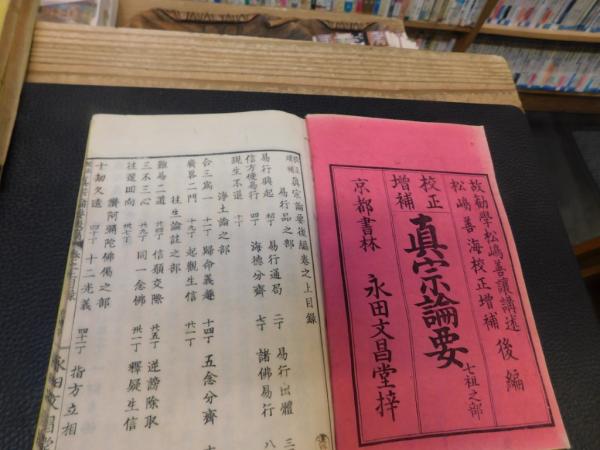 故勸學松嶋善讓講述
松嶋善海校正增補
後編
校正
增補
真宗論要
七祖之部
京都書林
永田文昌堂梓
校正
增補
真宗論要後編卷之上目錄
易行品之部
易行興起 初丁 易行通局 二丁 易行出體 三
信方便易行 四丁 海德分齊 七丁 諸佛易行 八
現生不退 十丁
淨土論之部
合三爲一 十一丁 歸命義趣 十四丁 五念分齊
廣畧二門 十九丁 起觀生信 廿一丁
往生論註之部
難易二道 廿四丁 信願交際 廿五丁 逆謗除取
三不三心 廿九丁 同一念佛 卅一丁 釋疑生信
往還回向
讚阿彌陀佛偈之部
十劫久遠 四十丁 十二光義 四十二丁 指方立相
永田文昌堂